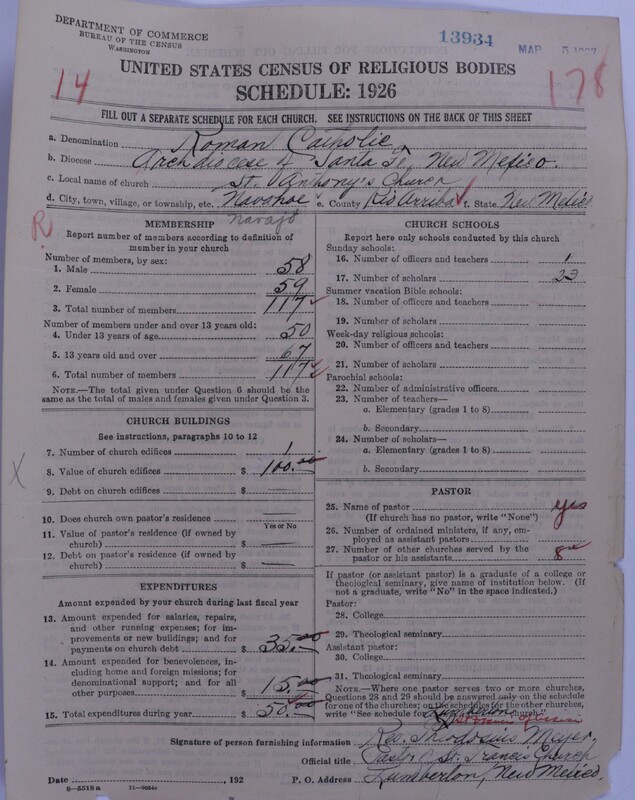 DEPARTMENT OF COMMERCE
BUREAU OF THE CENSUS
WASHINGTON
13934
MAR
14
178
UNITED STATES CENSUS OF RELIGIOUS BODIES
SCHEDULE: 1926
FILL OUT A SEPARATE SCHEDULE FOR EACH CHURCH. SEE INSTRUCTIONS ON THE BACK OF THIS SHEET
a. Denomination Roman Catholic
b. Diocese Archdiocese of Santa Fe, New Mexico.
c. Local name of church St. Anthony's Church
d. City, town, village, or township, etc. Navahoe e. County Rio Arriba f. State New Mexico
Navajo
R
MEMBERSHIP
Report number of members according to definition of
member in your church
Number of members, by sex:
1. Male 58
2. Female 59
3. Total number of members 117
Number of members under and over 13 years old:
4. Under 13 years of age 50
5. 13 years old and over 67
6. Total number of members 117
NOTE.—The total given under Question 6 should be
same as the total of males and females given under Question 3.
CHURCH BUILDINGS
See instructions, paragraphs 10 to 12
7. Number of church edifices 1
X
8. Value of church edifices $ 100.00
9. Debt on church edifices $
10. Does church own pastor's residence
Yes or No
11. Value of pastor's residence (if owned by
church) $ —
12. Debt on pastor's residence (if owned by
church) $ —
EXPENDITURES
Amount expended by your church during last fiscal year
13. Amount expended for salaries, repairs,
and other running expenses; for im-
provements or new buildings; and for
payments on church debt $ 35.00
14. Amount expended for benevolences,
including home and foreign missions; for
denominational support; and for all
other purposes $ 15.00
15. Total expenditures during year $ 50.00
CHURCH SCHOOLS
Report here only schools conducted by this church
Sunday schools:
16. Number of officers and teachers 1
17. Number of scholars 23
Summer vacation Bible schools:
18. Number of officers and teachers
19. Number of scholars
Week-day religious schools:
20. Number of officers and teachers
21. Number of scholars
Parochial schools:
22. Number of administrative officers
23. Number of teachers—
a. Elementary (grades 1 to 8)
b. Secondary
24. Number of scholars—
a. Elementary (grades 1 to 8)
b. Secondary
PASTOR
25. Name of pastor yes
(If church has no pastor, write "None")
26. Number of ordained ministers, if any, em-
ployed as assistant pastors
27. Number of other churches served by the
pastor or his assistants 8
If pastor (or assistant pastor) is a graduate of a college or
theological seminary, give name of institution below. (If
not a graduate, write "No" in the space indicated.)
Pastor:
28. College
29. Theological seminary
Assistant pastor:
30. College
31. Theological seminary
NOTE.—Where one pastor serves two or more churches,
Questions 28 and 29 should be answered only on the schedule
for one of the churches; on the schedules for the other churches,
write "See schedule for Lumberton church."
Signature of person furnishing information Rev. Theodosius Meyer,
Official title Pastor St. Francis Church
Date , 192 P. O. Address Lumberton, New Mexico.
8—5518a 11—9024a